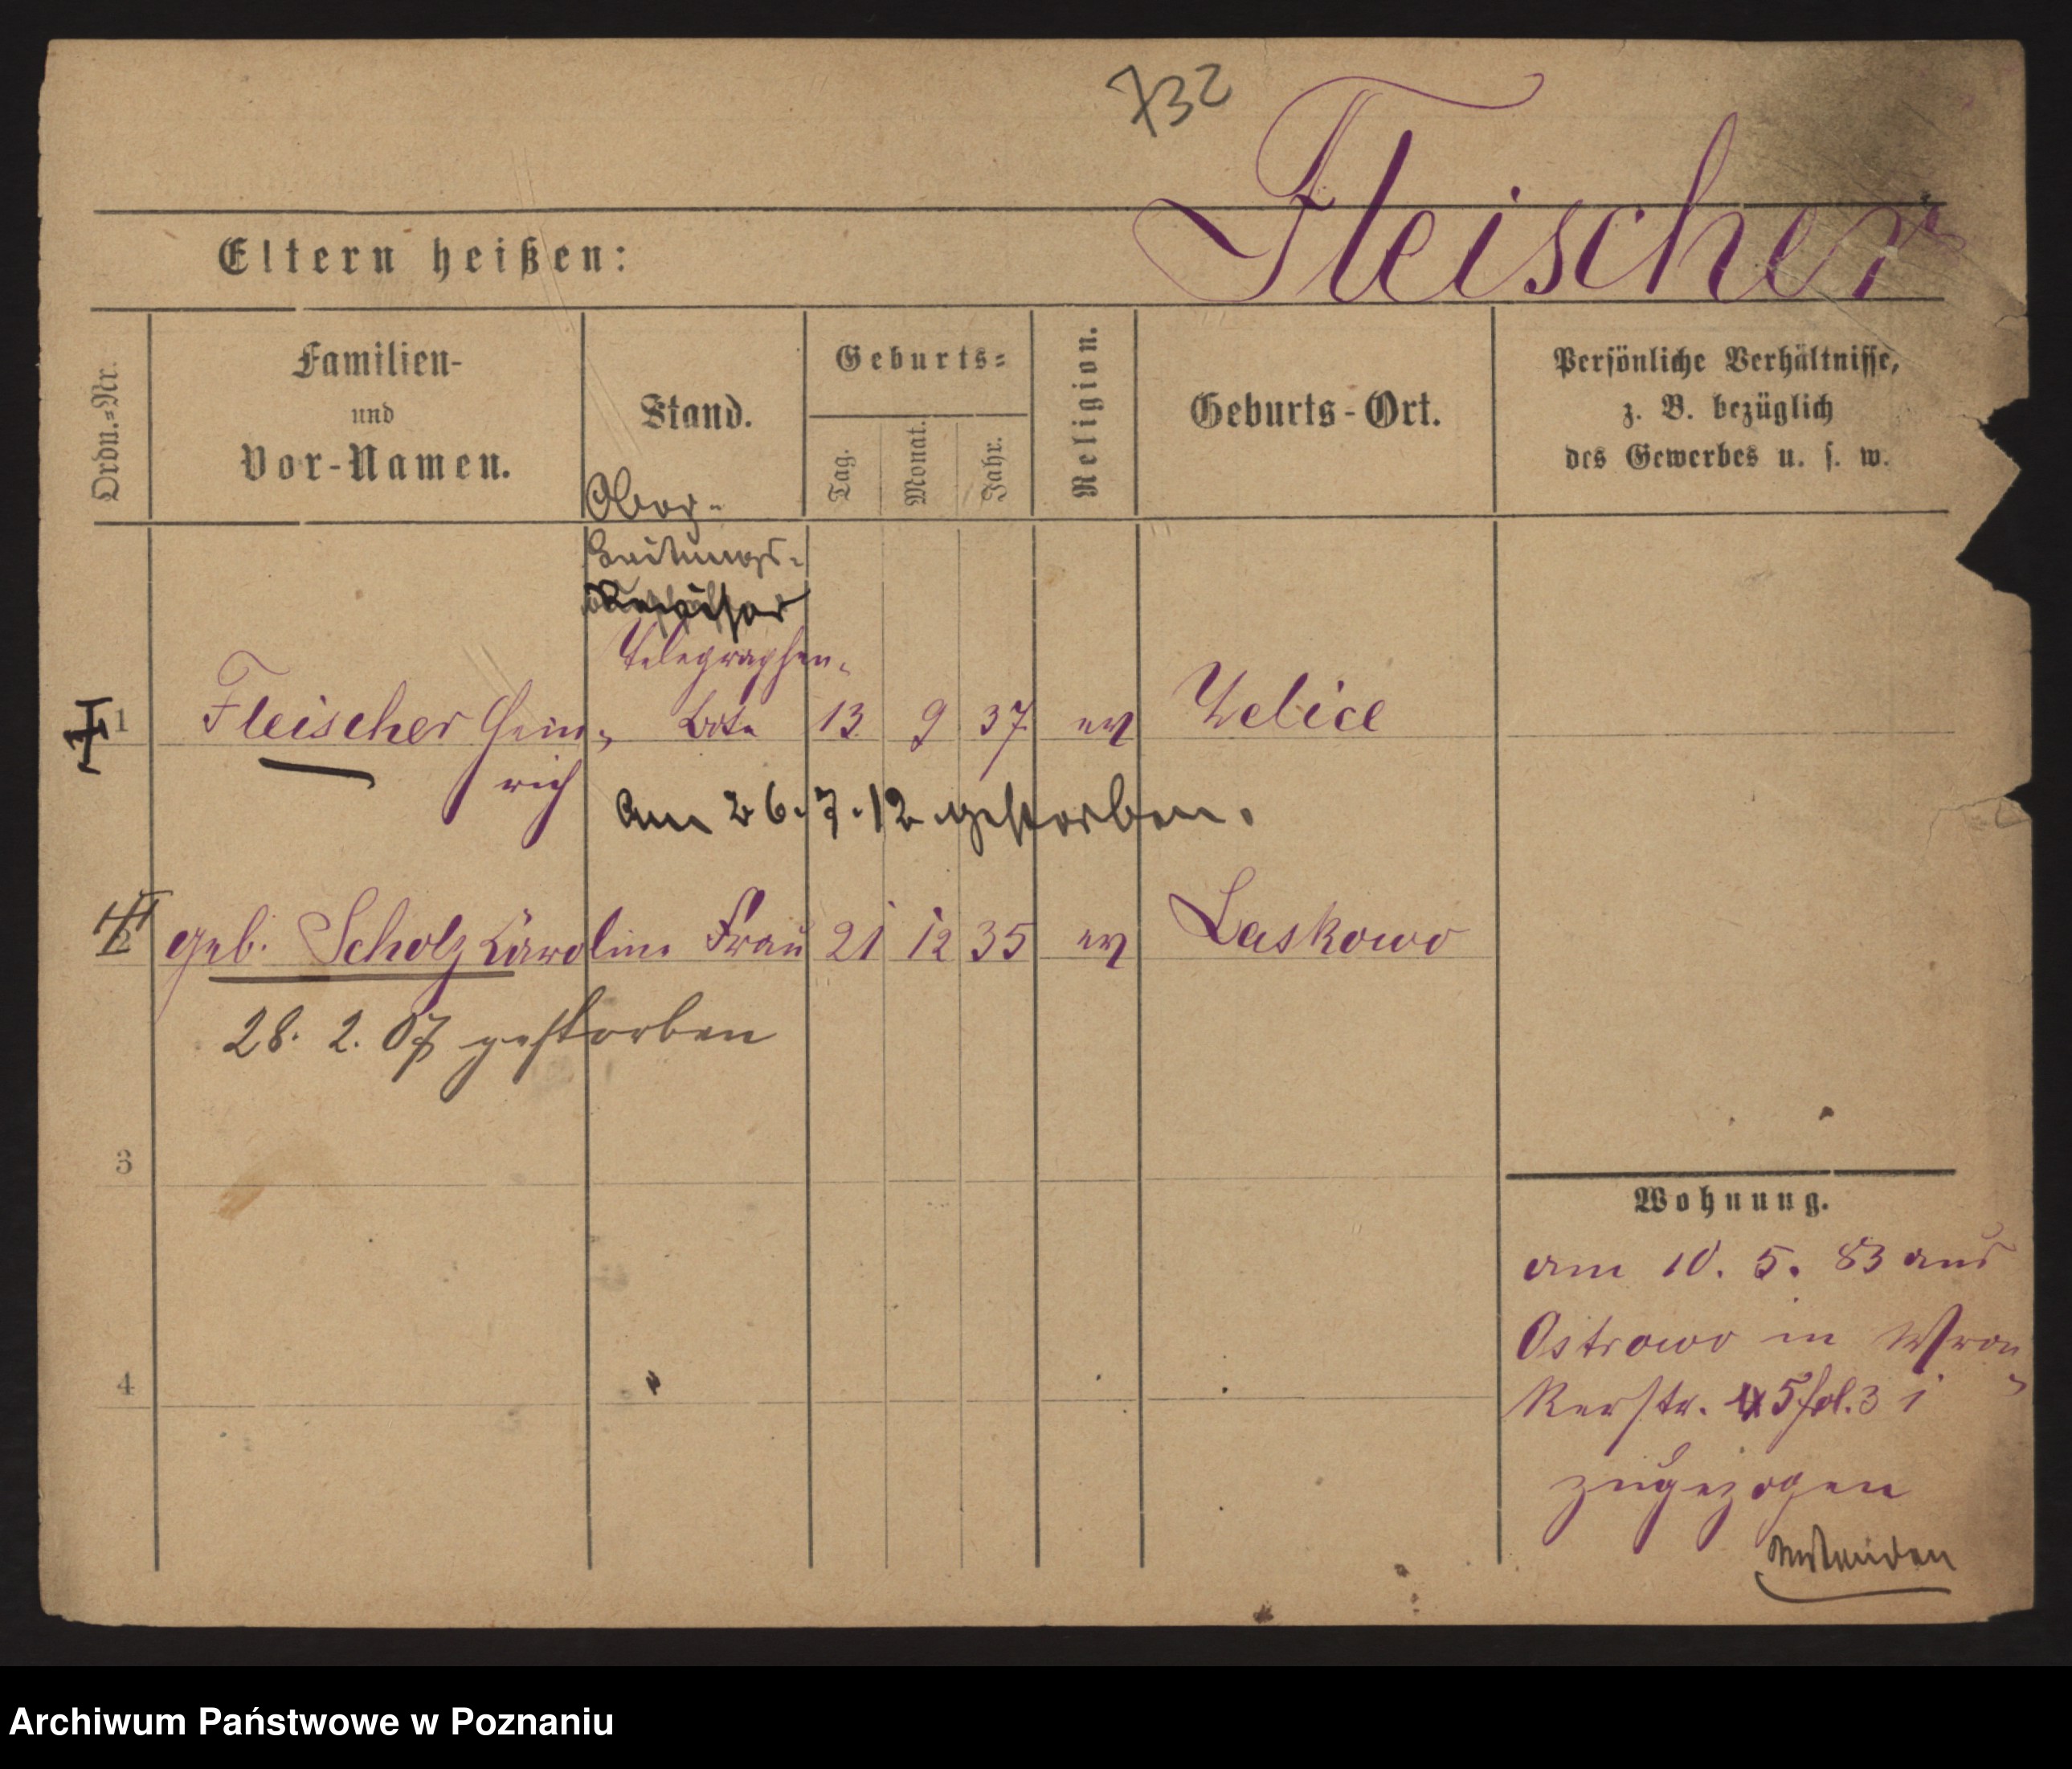 732
Fleischer
Eltern heißen:
Ordn.=Nr.
Familien-
und
Vor-Namen.
Stand.
Geburts=
Tag.
Monat.
Jahr.
Religion.
Geburts-Ort.
Persönliche Verhältnisse,
z. B. bezüglich
des Gewerbes u. s. w.
Ober-
Leitungs-
Revisor
Telegraphen-
1 Fleischer Hein- Bote 13 9 37 ev Zelice
rich
Am 26.7.12 gestorben.
2 geb. Scholz Caroline Frau 21 12 35 ev Laskowo
28. 2. 07 gestorben
3
4
Wohnung.
am 10. 5. 83 aus
Ostrowo in Wron
kerstr. 45 fol. 3 i
zugezogen
Archiwum Państwowe w Poznaniu